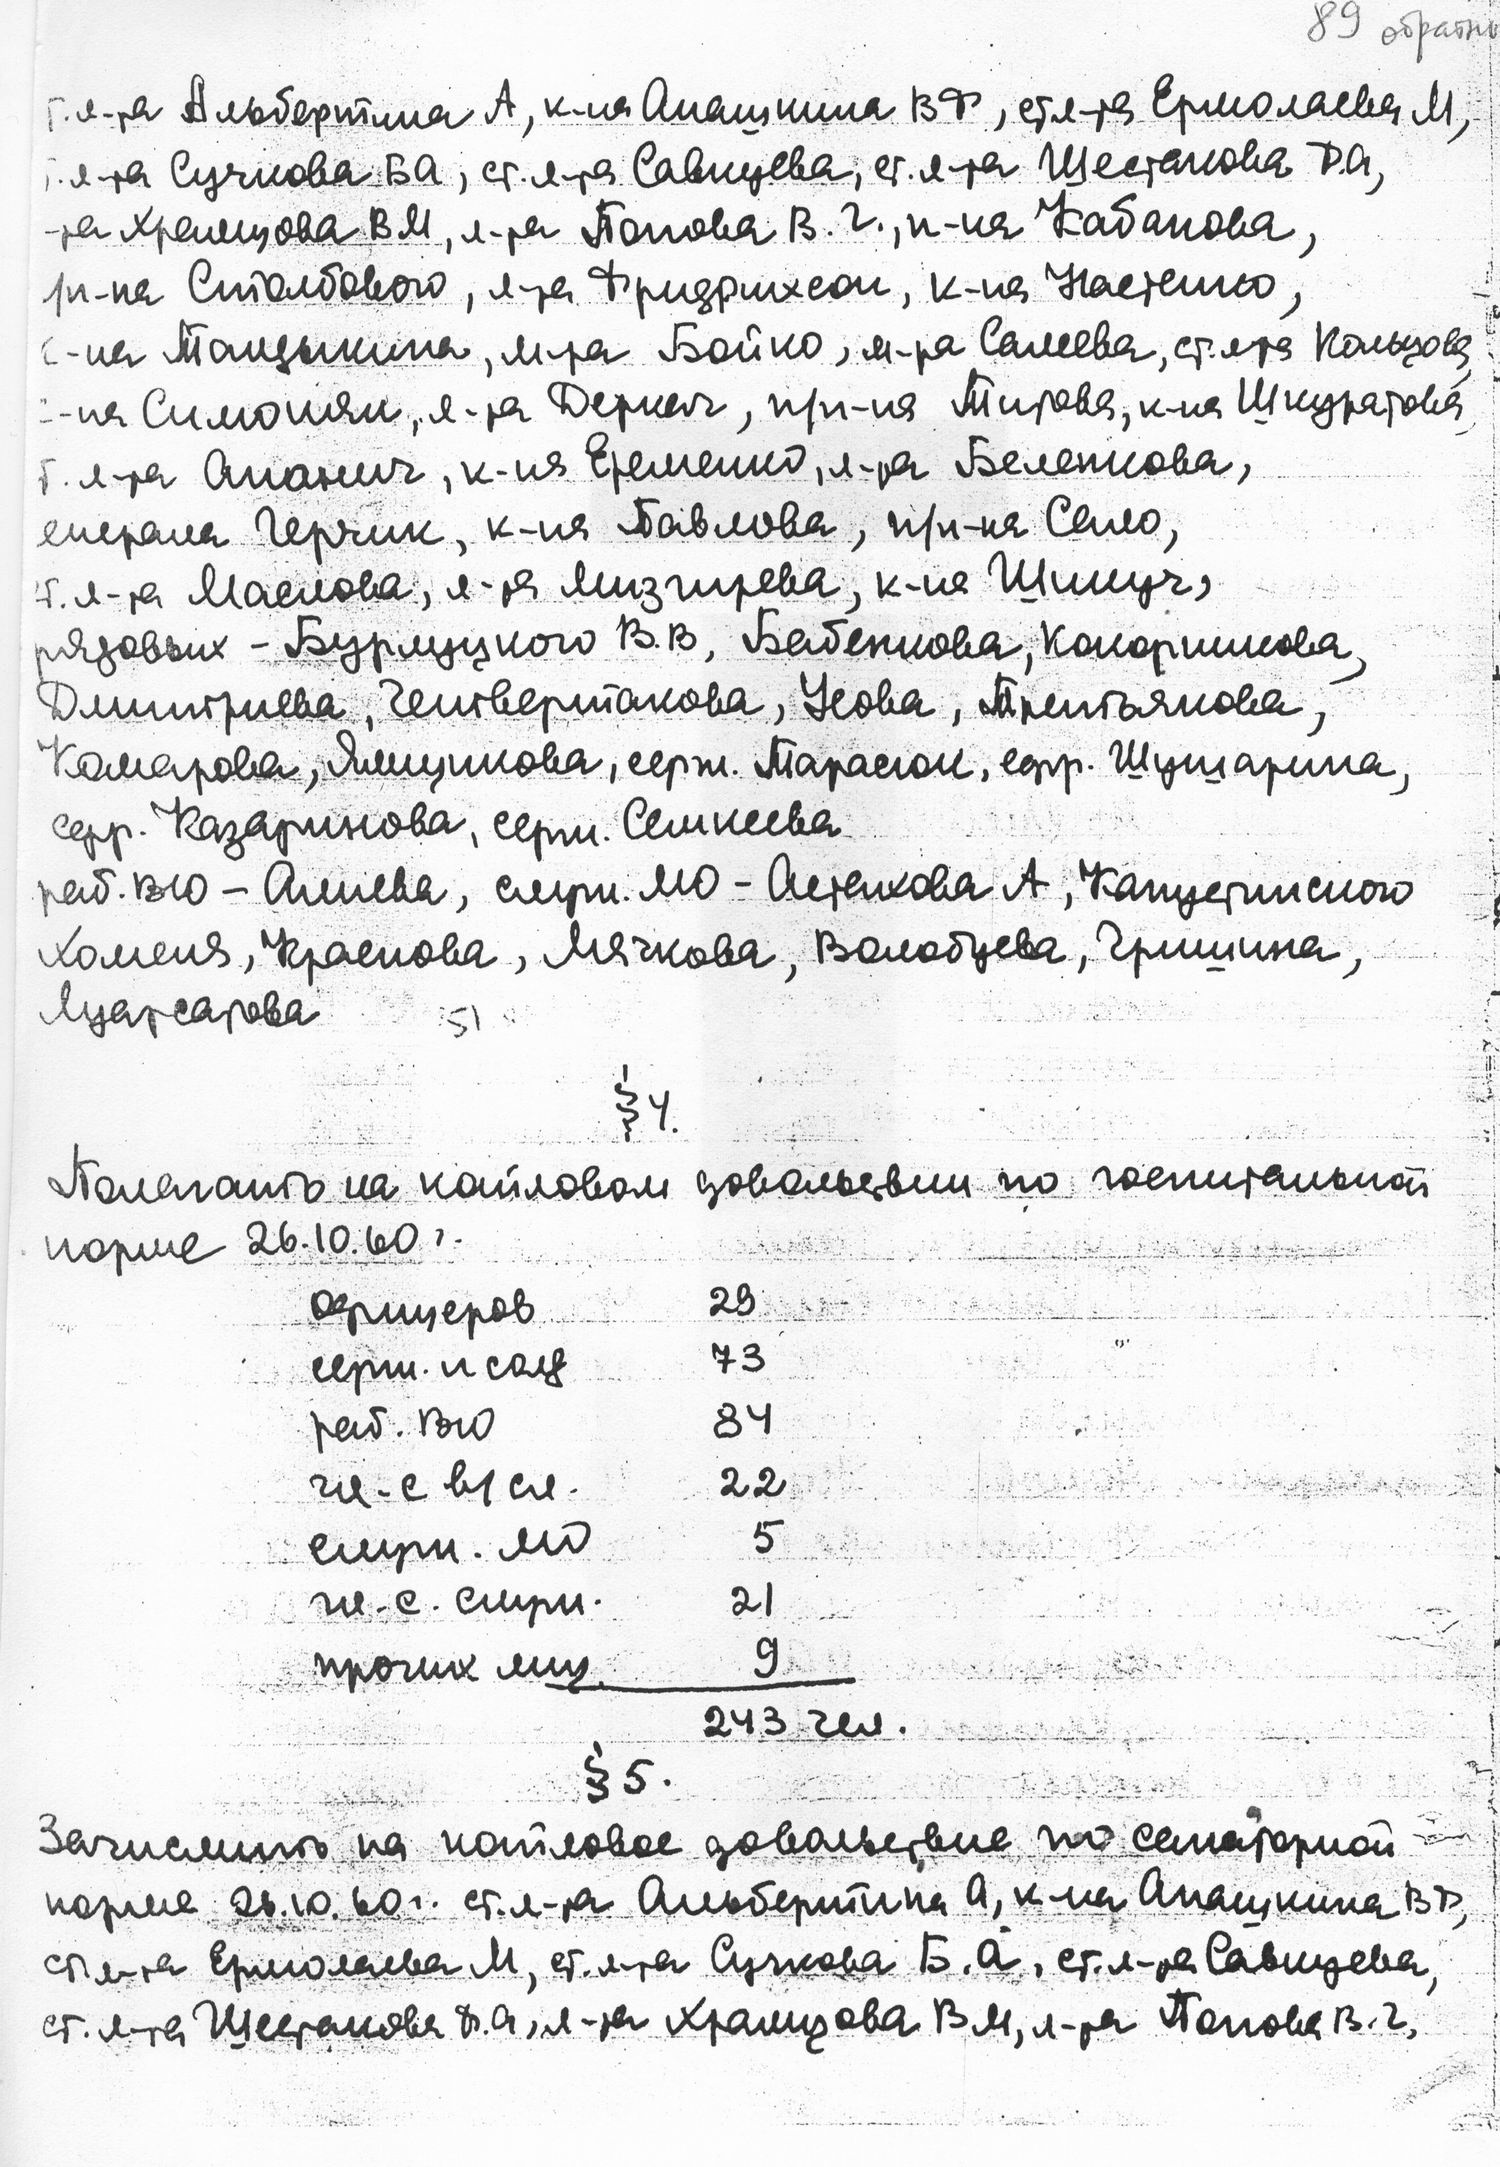 89 обратн
т. л-та Альбертина А, к-на Апашкина В Ф, ст л-та Ермолаева М,
т. л-та Сучкова БА, ст. л-та Савинцева, ст. л-та Шестакова Д.А,
-та Храмцова В М, л-та Попова В. Г., п-ка Кабанова,
п/п-ка Столбового, л-та Фридрихсон, к-на Настенко,
к-на Тандыкина, м-ра Бойко, м-ра Салеева, ст. л-та Кольцова,
-на Симонян, л-та Деркач, п/п-ка Титова, к-на Шкуратова,
т. л-та Апанич, к-на Еременко, л-та Беленкова,
енерала Герчик, к-на Павлова, п/п-ка Село,
ст. л-та Маслова, л-та Мизгирева, к-на Шимуч,
рядовых - Бурлуцкого В.В, Бабенкова, Кокоришкова,
Дмитриева, Четвертакова, Усова, Третьякова,
Комарова, Ямщикова, серж. Тарасюк, ефр. Шушарина,
ефр. Казаринова, серж. Семкеева
раб. ВЮ - Алиева, служ. МО - Астахова А, Капустинского
Хоменя, Краснова, Мячкова, Волобуева, Гришина,
51
§ 4.
Полагать на котловом довольствии по госпитальной
норме 26.10.60 г.
офицеров 29
серж. и солд 73
раб. ВЮ 84
чл. - с в/сл. 22
служ. МО 5
чл. - с. служ. 21
прочих лиц 9
243 чел.
§ 5.
Зачислить на котловое довольствие по санаторной
норме 26.10.60 г. ст. л-та Альбертина А, к-на Апашкина ВФ,
ст л-та Ермолаева М, ст. л-та Сучкова Б.А, ст. л-та Савинцева,
ст. л-та Шестакова Д.А, л-та Храмцова В М, л-та Попова В.Г,